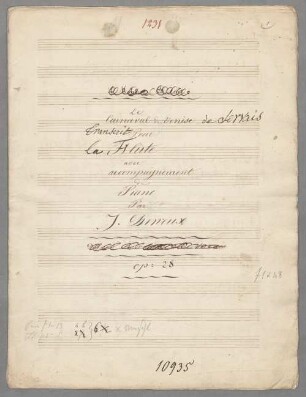 1291
Le
Carnaval de Venise de Servais
Transcrit pour
la Flûte
avec
accompagnement
de
Piano
Par
J. Demeux
op: 28
10935